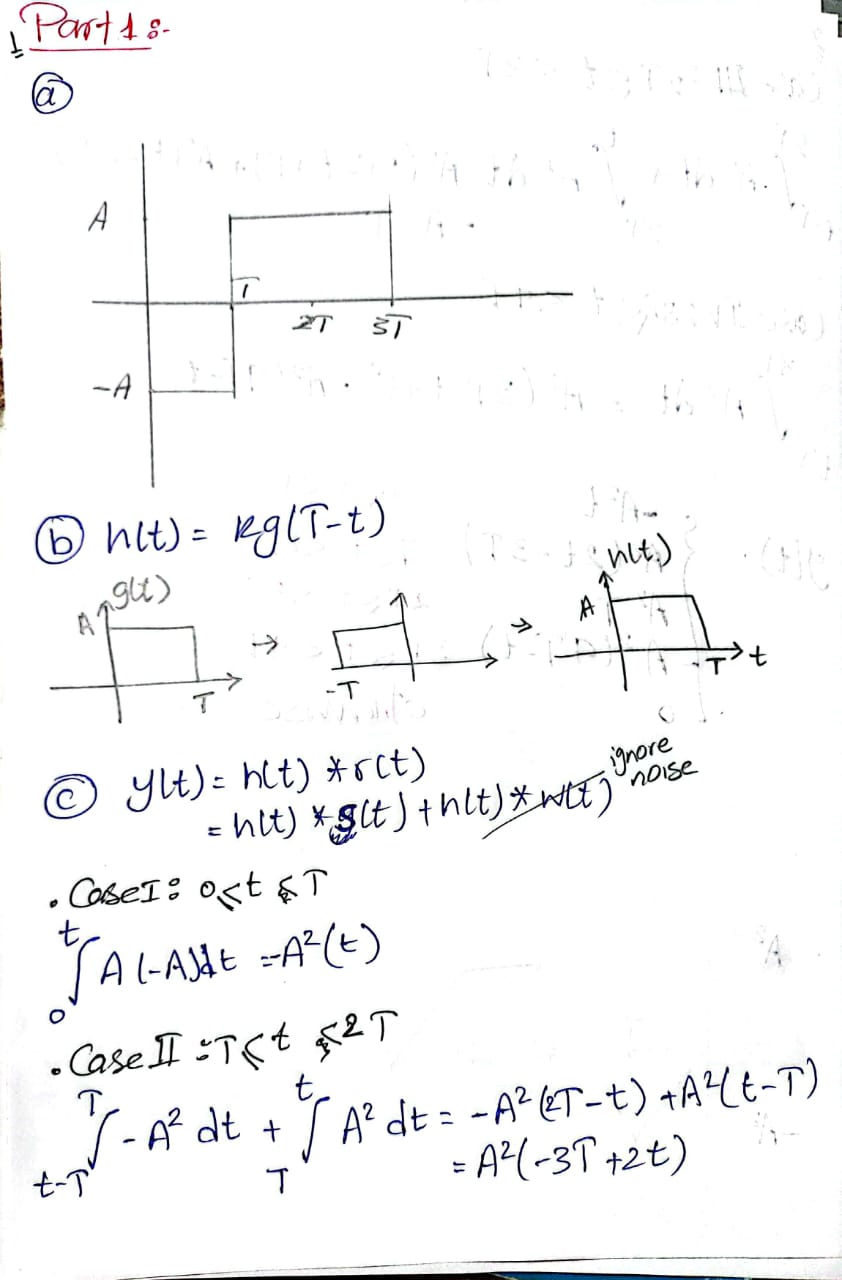 1 Part 1 :-
(a)
A
T
2T 3T
-A
(b) h(t) = kg(T-t)
g(t) h(t)
A → → A
T -T T t
(c) y(t) = h(t) * r(t)
= h(t) * g(t) + h(t) * w(t) ignore noise
. Case I : 0 ≤ t ≤ T
∫₀ᵗ A(-A)dt = -A²(t)
. Case II : T ≤ t ≤ 2T
∫_{t-T}^{T} -A² dt + ∫_{T}^{t} A² dt = -A²(2T-t) + A²(t-T)
= A²(-3T+2t)